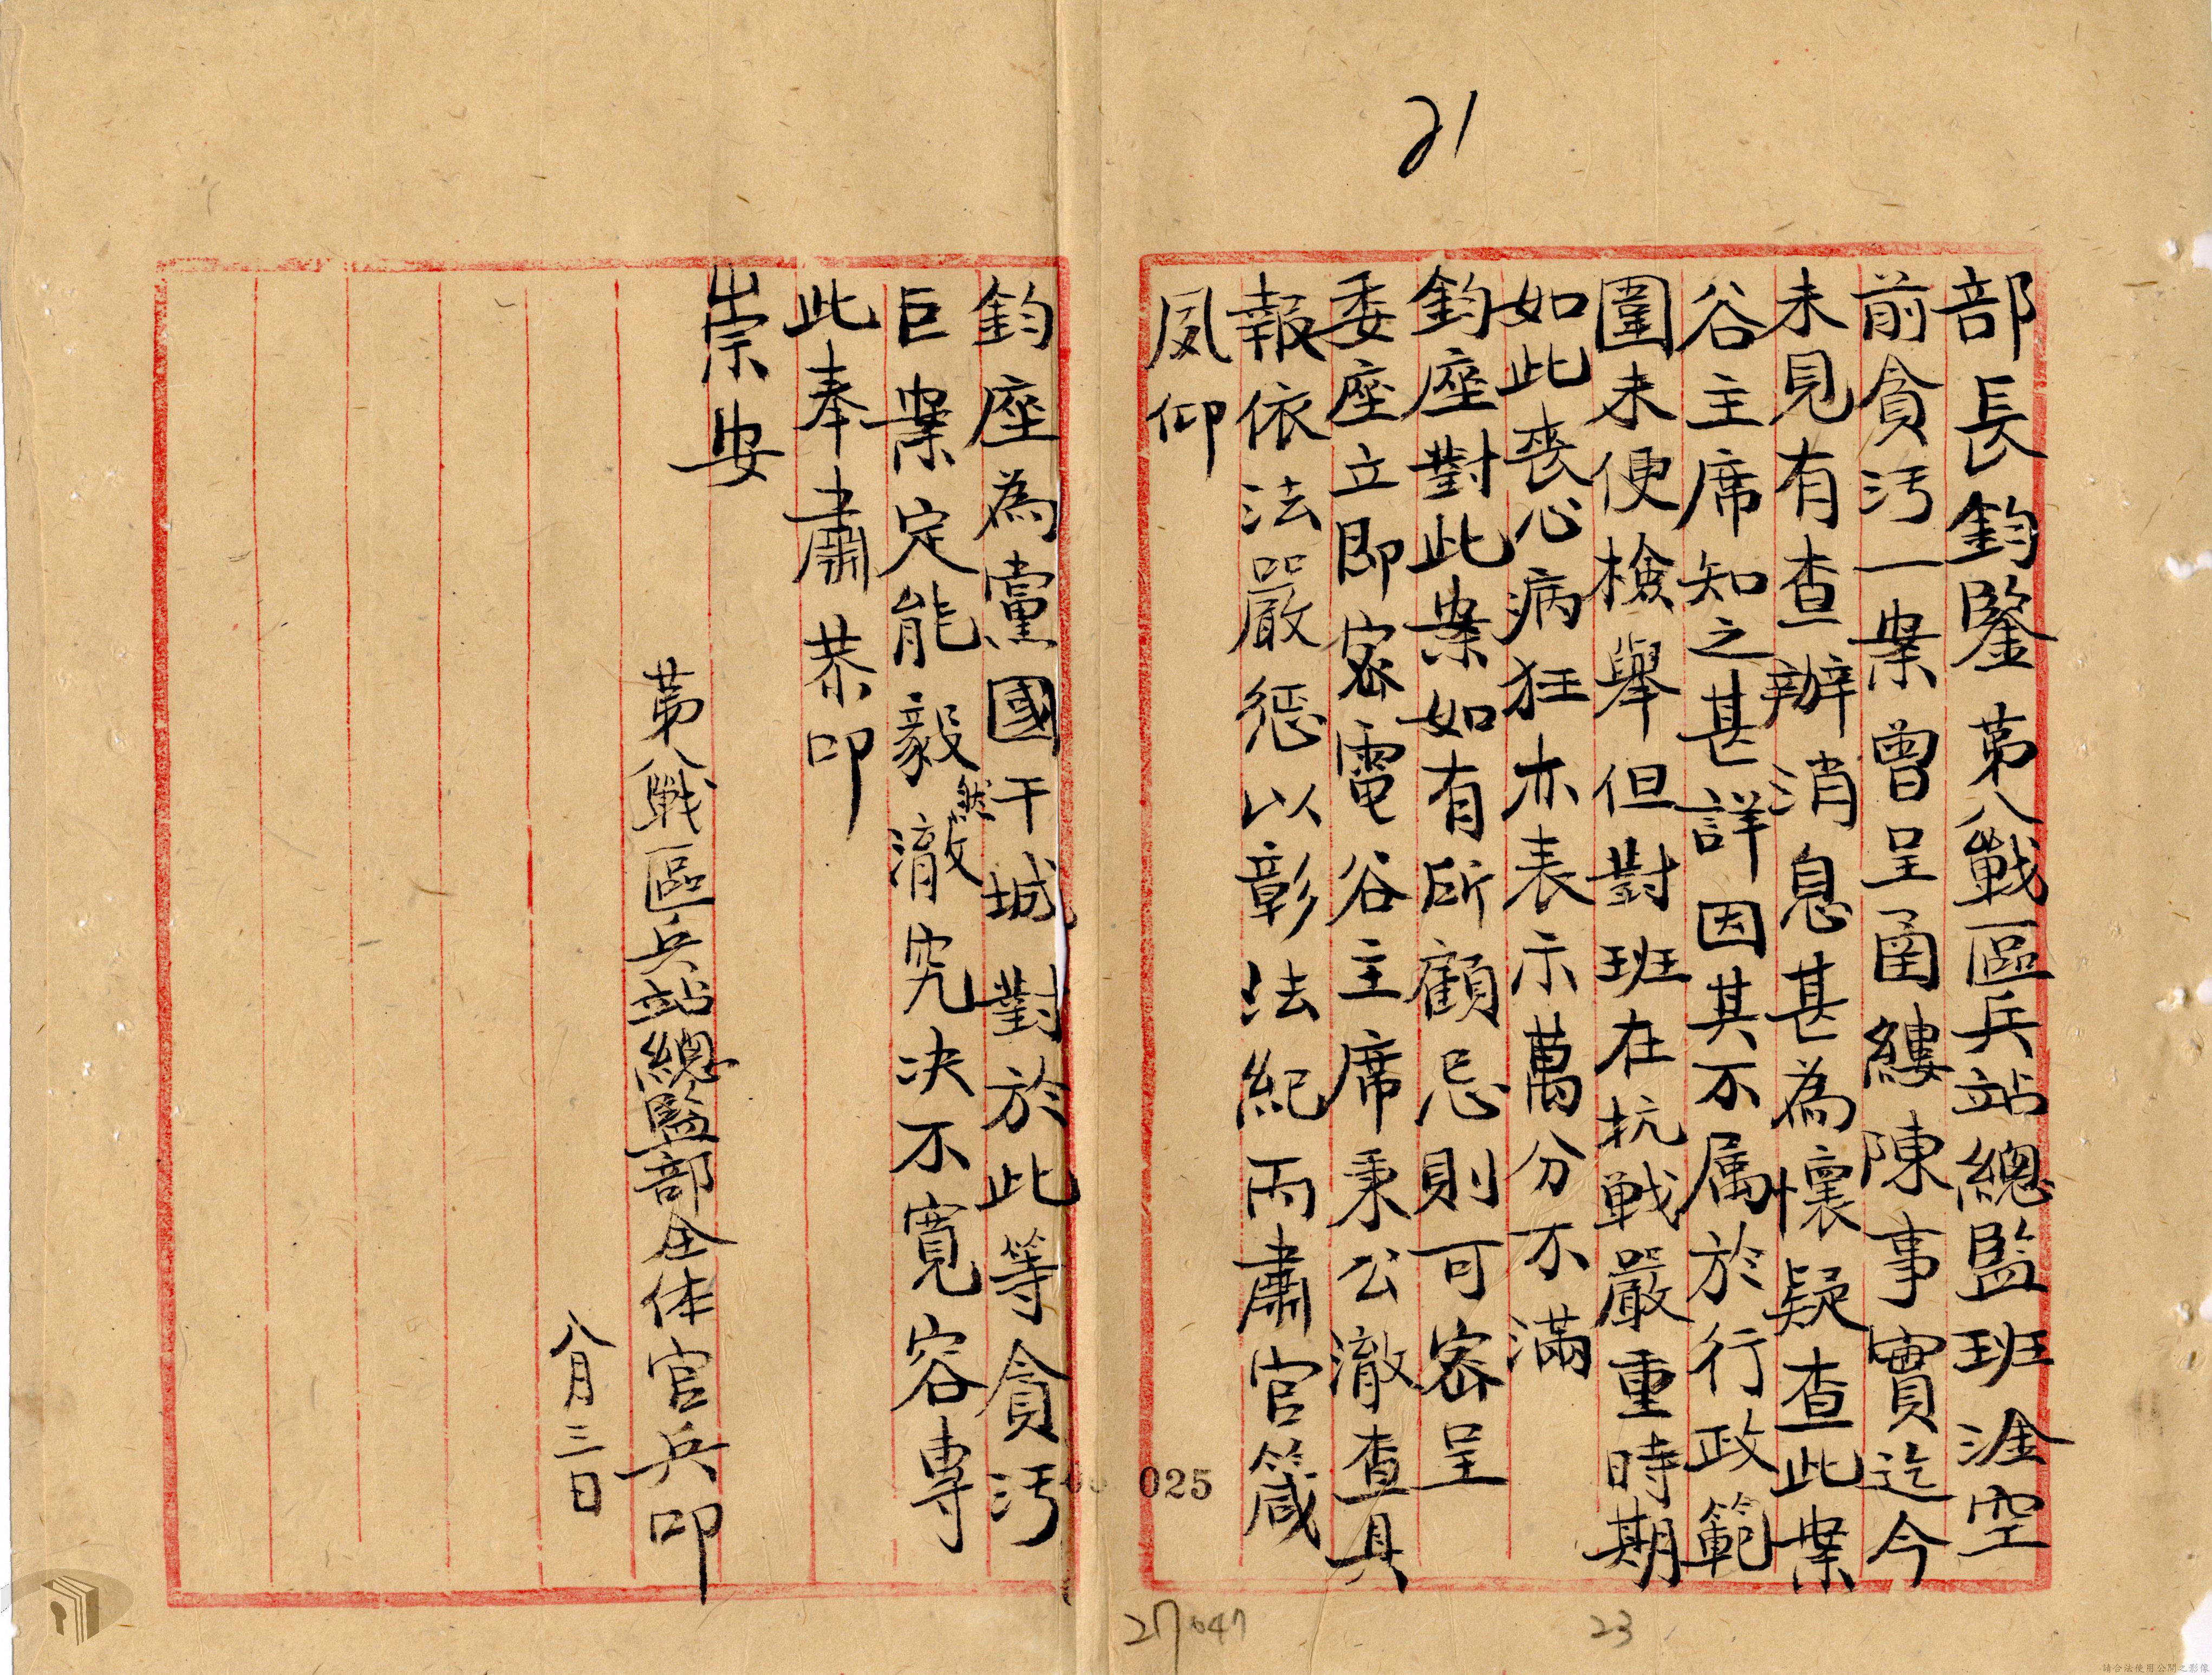 21
部長鈞鑒第八戰區兵站總監班淦空
前貪污一案曾呈函縷陳事實迄今
未見有查辦消息甚為懷疑查此案
谷主席知之甚詳因其不属於行政範
圍未便檢舉但對班在抗戰嚴重時期
如此喪心病狂亦表示萬分不滿
鈞座對此案如有所顧忌則可密呈
委座立即密電谷主席秉公澈查具
報依法嚴惩以彰法紀而肅官箴
夙仰
鈞座為黨國干城對於此等貪污
巨案定能毅然澈究决不寬容專
此奉肅恭叩
崇安
第八戰區兵站總監部全体官兵叩
八月三日
025
27
047
23
請合法使用公開之影像